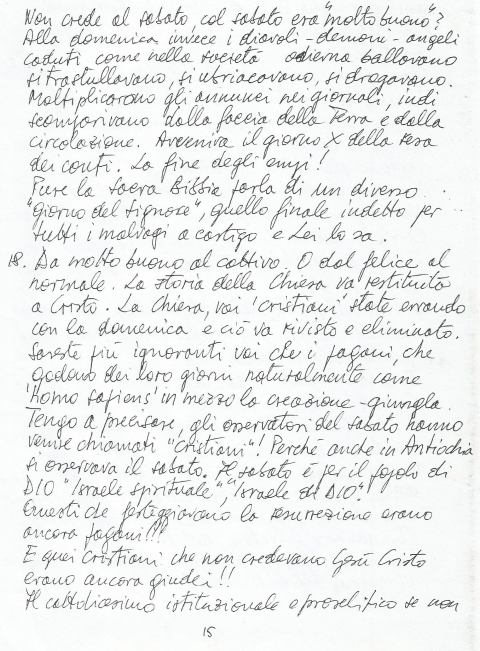 Non crede al sabato, col sabato era "molto buono"?
Alla domenica invece i diavoli-demoni-angeli
caduti come nella società odierna ballavano
si trastullavano, si ubriacavano, si drogavano.
Moltiplicarono gli annunci nei giornali, indi
scomparivano dalla faccia della Terra e dalla
circolazione. Avveniva il giorno X della resa
dei conti. La fine degli empi!
Pure la Sacra Bibbia parla di un diverso
"giorno del Signore", quello finale indetto per
tutti i malvagi a castigo e Lei lo sa.
18. Da molto buono al cattivo. O dal felice al
normale. La storia della Chiesa va restituita
a Cristo. La Chiesa, voi 'cristiani' state errando
con la domenica e ciò va rivisto e eliminato.
Sareste più ignoranti voi che i pagani, che
godono dei loro giorni naturalmente come
'homo sapiens' in mezzo la creazione-giungla.
Tengo a precisare, gli osservatori del sabato hanno
venise chiamati "Cristiani"! Perché anche in Antiochia
si osservava il sabato. Il sabato è per il popolo di
DIO "Israele spirituale", "Israele di DIO".
Questi che festeggiavano la resurrezione erano
ancora pagani!!!
E quei cristiani che non credevano Gesù Cristo
erano ancora giudei!!
Il cattolicesimo istituzionale e proselitico se non
15